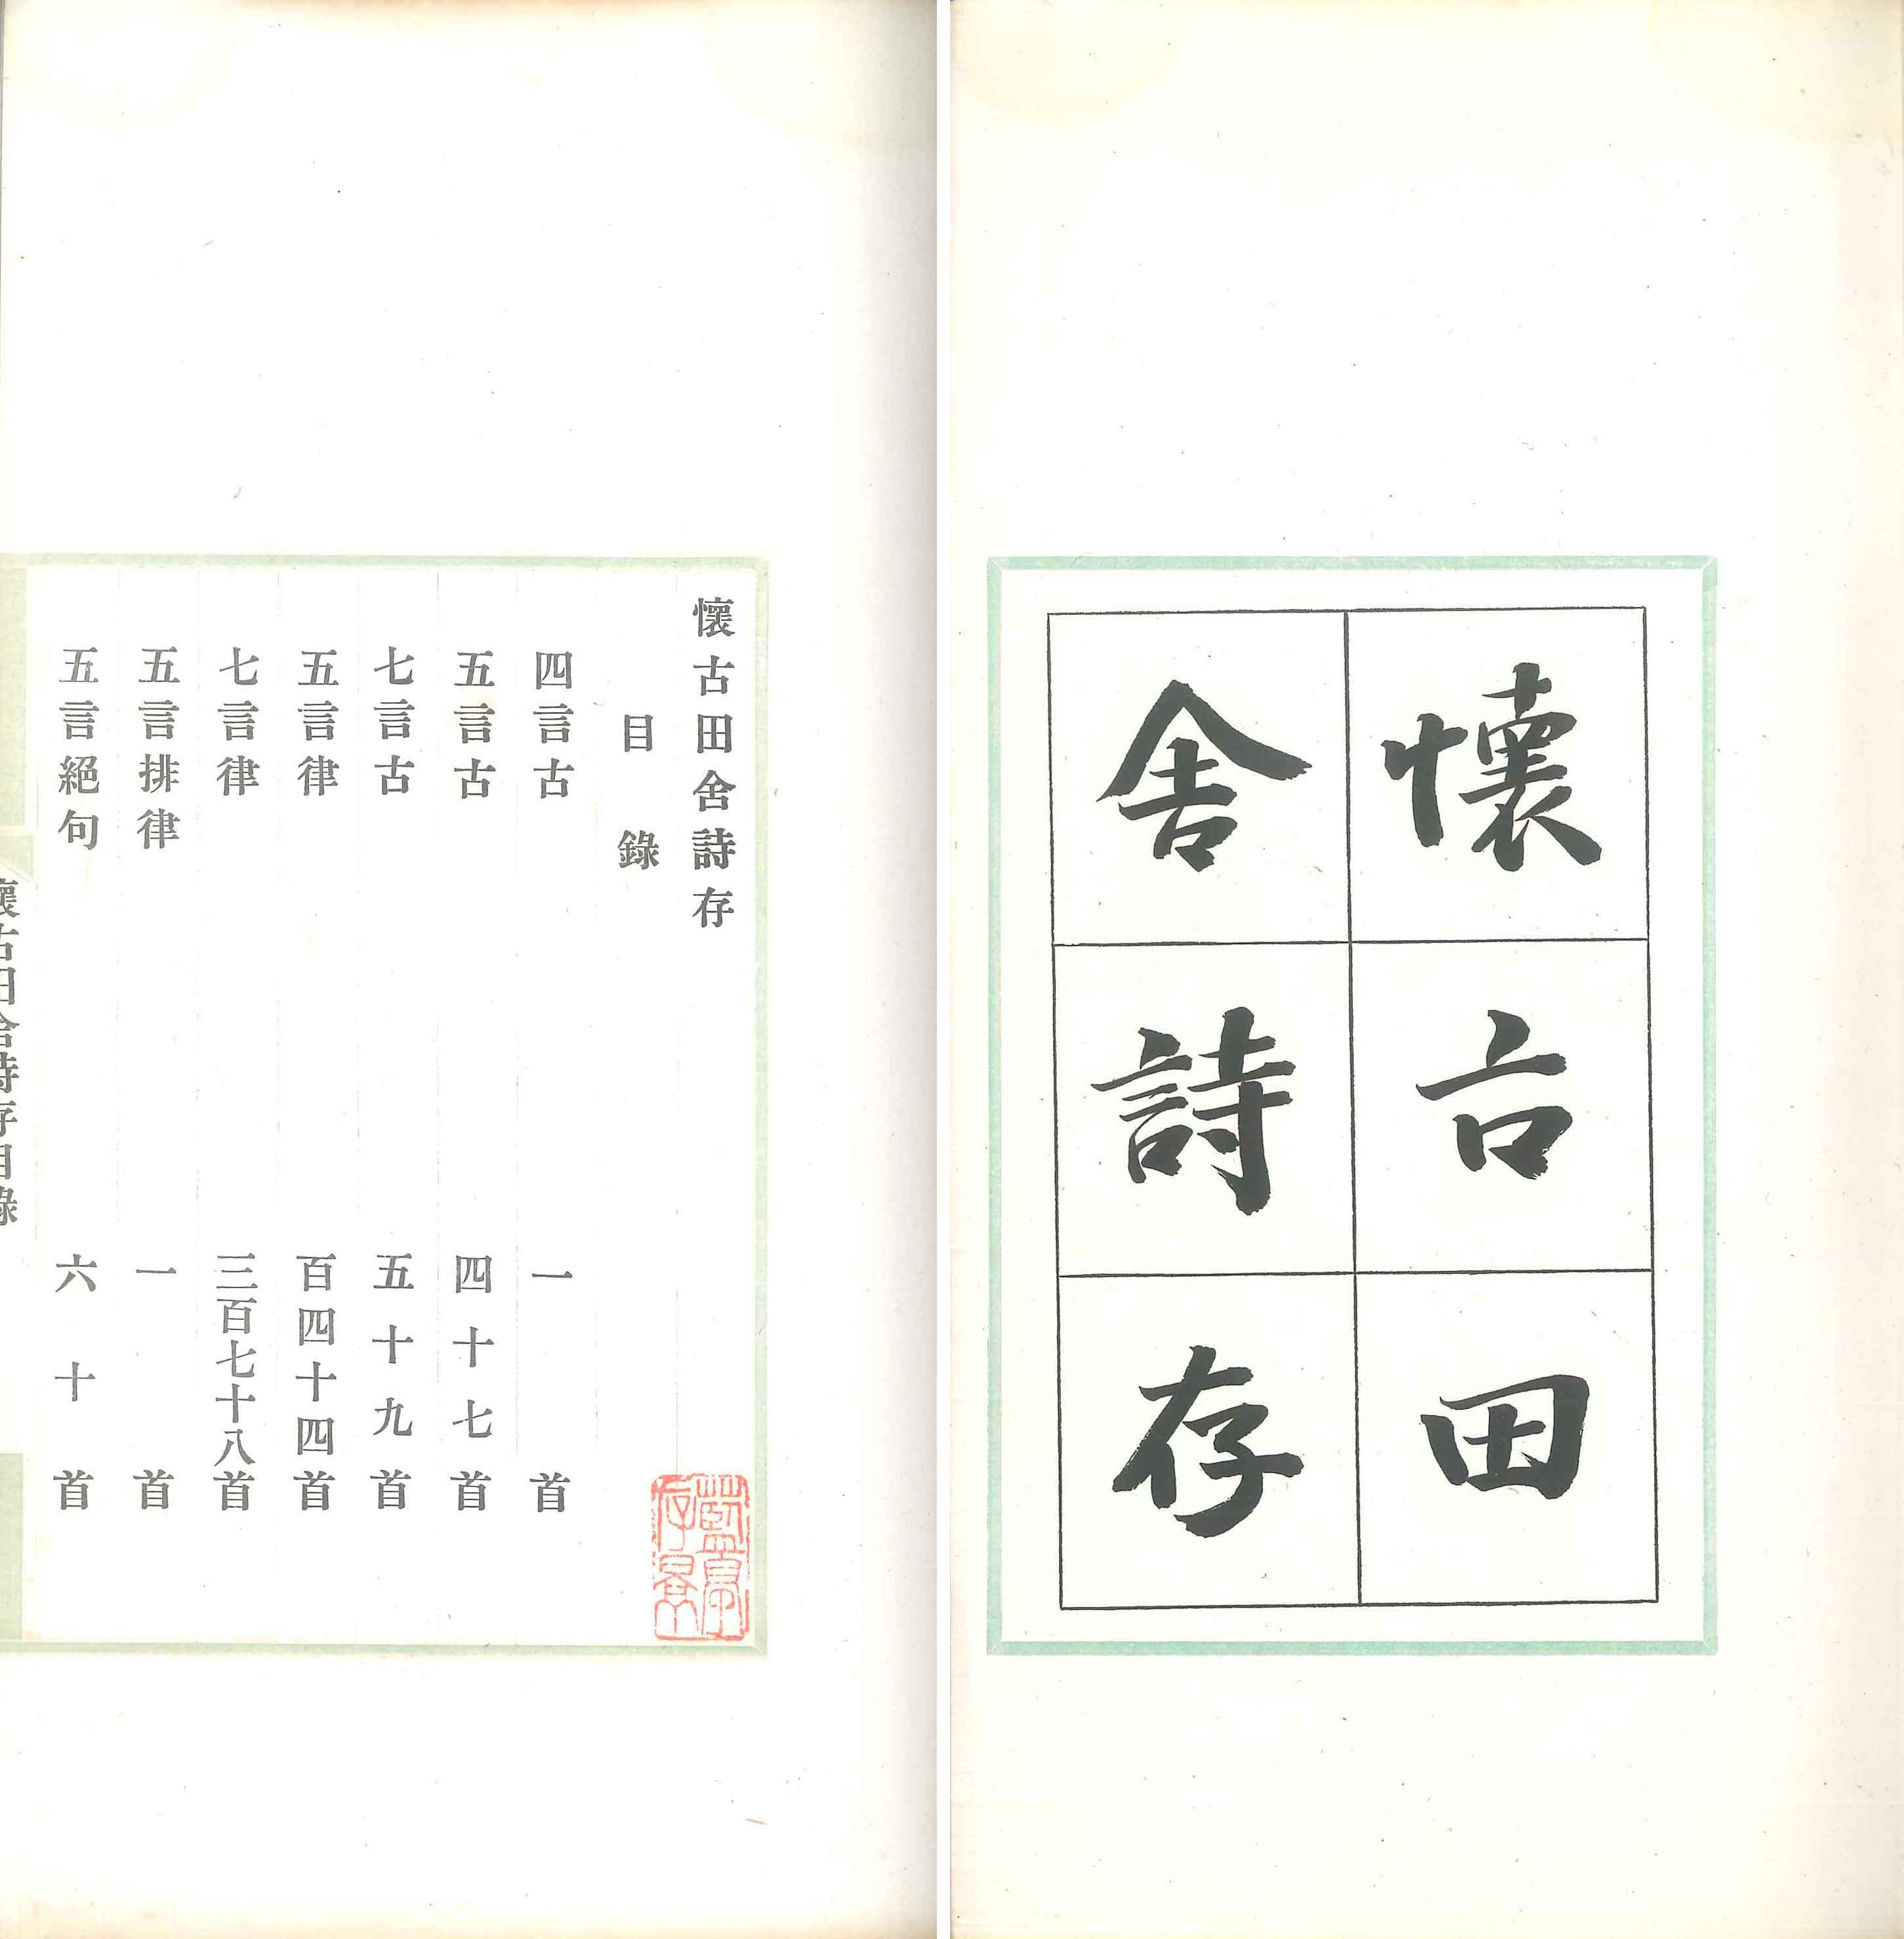 懷古田
舍詩存
懷古田舍詩存
目錄
四言古 一首
五言古 四十七首
七言古 五十九首
五言律 百四十四首
七言律 三百七十八首
五言排律 一首
五言絕句 六十首
懷古田舍詩存目錄